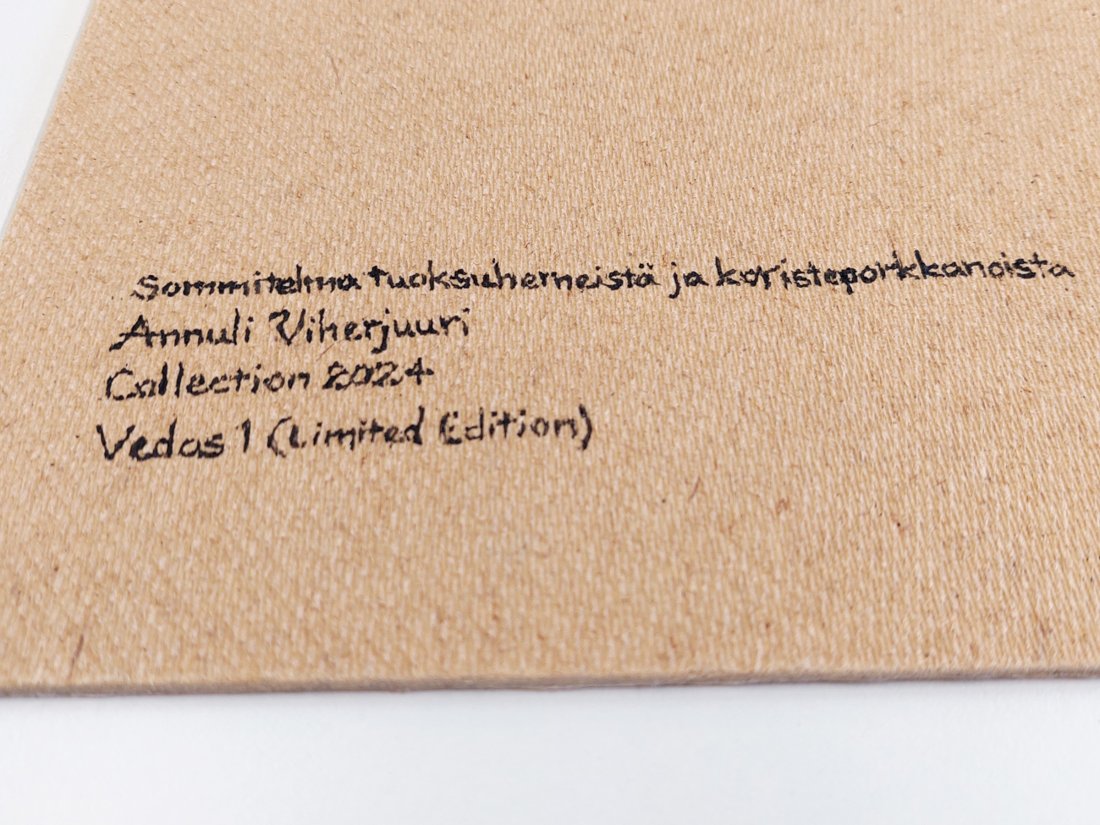 Sommitelma tuoksuherneistä ja koristeporkkanoista
Annuli Viherjuuri
Collection 2024
Vedos 1 (Limited Edition)